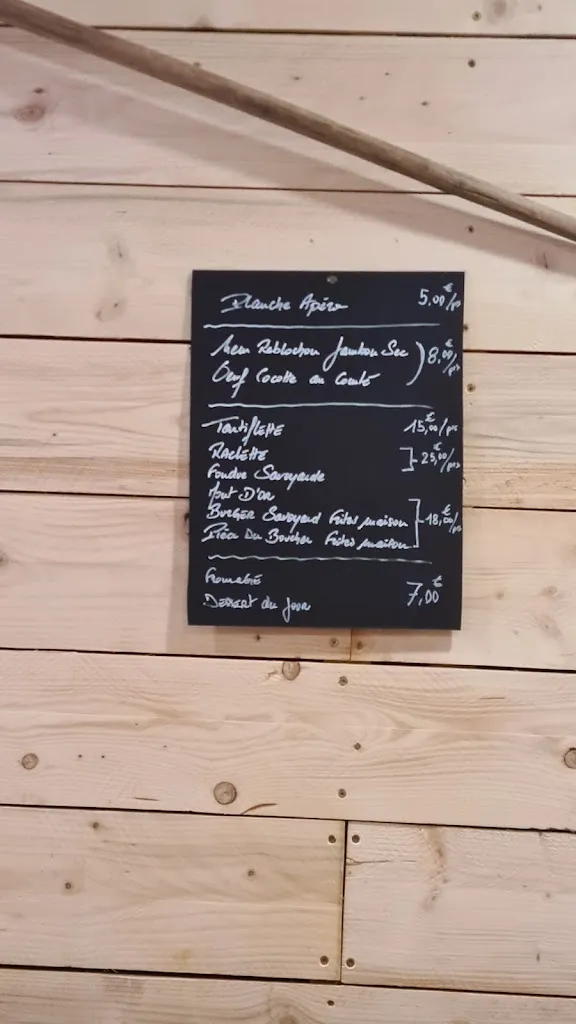 Planche Apéro 5,00€/prs
Reblochon Jambon Sec 8,00€/prs
Oeuf Cocotte au Comté
Tartiflette 15,00€/prs
Raclette 25,00€/prs
Fondue Savoyarde
Mont D'or
Burger Savoyard Frites maison 18,00€/prs
Pièce Du Boucher Frites maison
Dessert du jour 7,00€